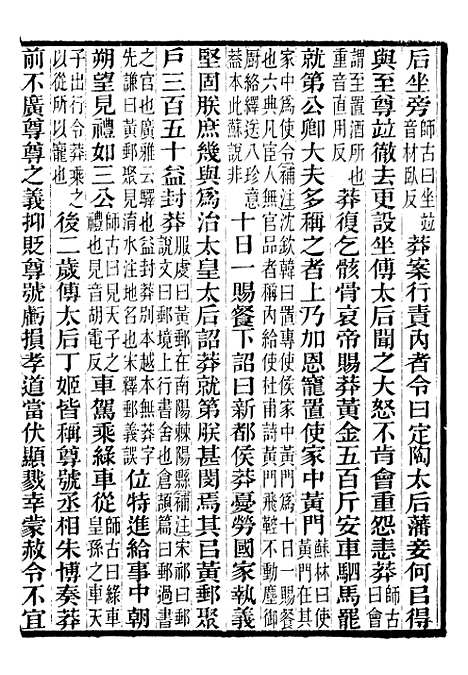 后坐旁師古曰坐竝音材臥反莽案行責內者令曰定陶太后藩妾何㠯得
與至尊竝徹去更設坐傅太后聞之大怒不肯會重怨恚莽師古曰會
謂至置酒所也重音直用反莽復乞骸骨哀帝賜莽黃金五百斤安車駟馬罷
就第公卿大夫多稱之者上乃加恩寵置使家中黃門蘇林曰使黃門在其
家中爲使令補注沈欽韓曰置專使令於其家中黃門爲十日一賜餐
也六典凡宦人無官品者稱內給使杜甫詩黃門飛鞚不動塵御
廚絡繹送八珍意蓋本此蘇說非十日一賜餐下詔曰新都侯莽憂勞國家執義
堅固朕庶幾與爲治太皇太后詔莽就第朕甚閔焉其㠯黃郵聚
戶三百五十益封莽服虔曰黃郵在南陽棘陽縣補注宋祁曰郵
說文曰郵境上行書舍也倉頡篇曰郵過書
之官也廣雅云驛也益封莽別本越本無封莽字
先謙曰黃郵聚見淯水注地名也宋釋郵義誤位特進給事中朝
朔望見禮如三公師古曰見天子之禮也見音胡電反車駕乘綠車從師古曰綠車皇孫之車天
子出行令莽乘之以從所以寵也後二歲傅太后丁姬皆稱尊號丞相朱博奏莽
前不廣尊尊之義抑貶尊號虧損孝道當伏顯戮幸蒙赦令不宜